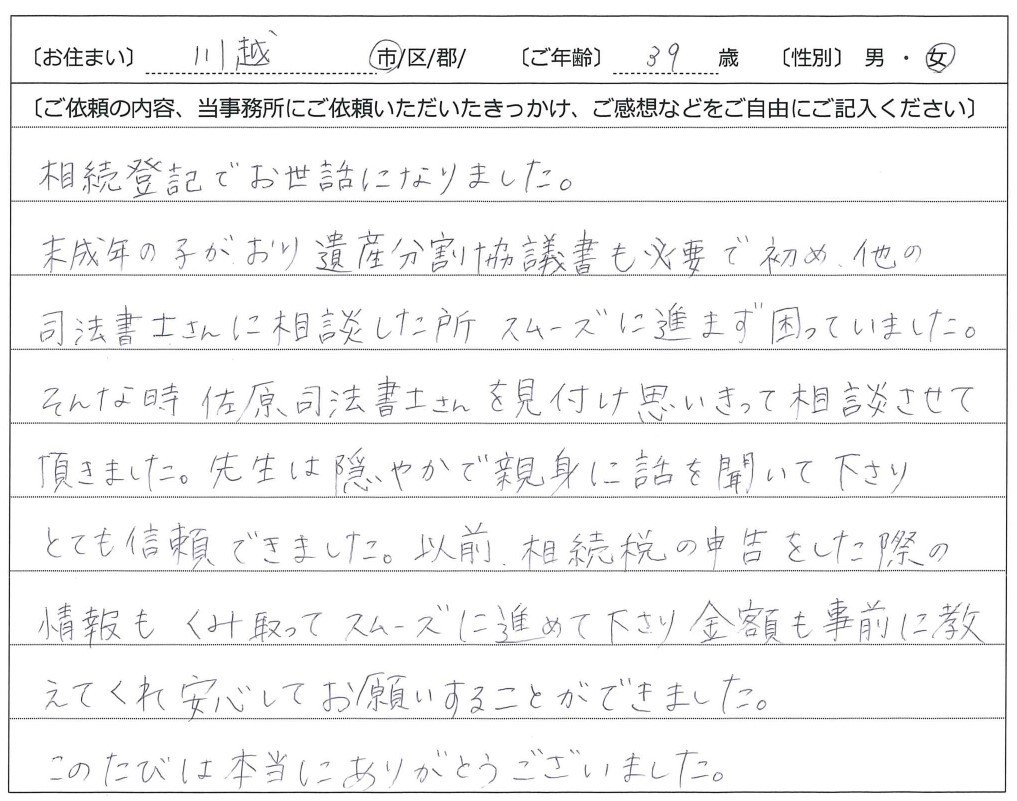 〔お住まい〕 川越 市/区/郡/ 〔ご年齢〕 39 歳 〔性別〕 男 ・ 女
〔ご依頼の内容、当事務所にご依頼いただいたきっかけ、ご感想などをご自由にご記入ください〕
相続登記でお世話になりました。
未成年の子がおり遺産分割協議書も必要で初め、他の
司法書士さんに相談した所 スムーズに進まず困っていました。
そんな時 佐原司法書士さんを見付け思いきって相談させて
頂きました。先生は隠やかで親身に話を聞いて下さり
とても信頼できました。以前、相続税の申告をした際の
情報も くみ取ってスムーズに進めて下さり金額も事前に教
えてくれ安心してお願いすることができました。
このたびは本当にありがとうございました。